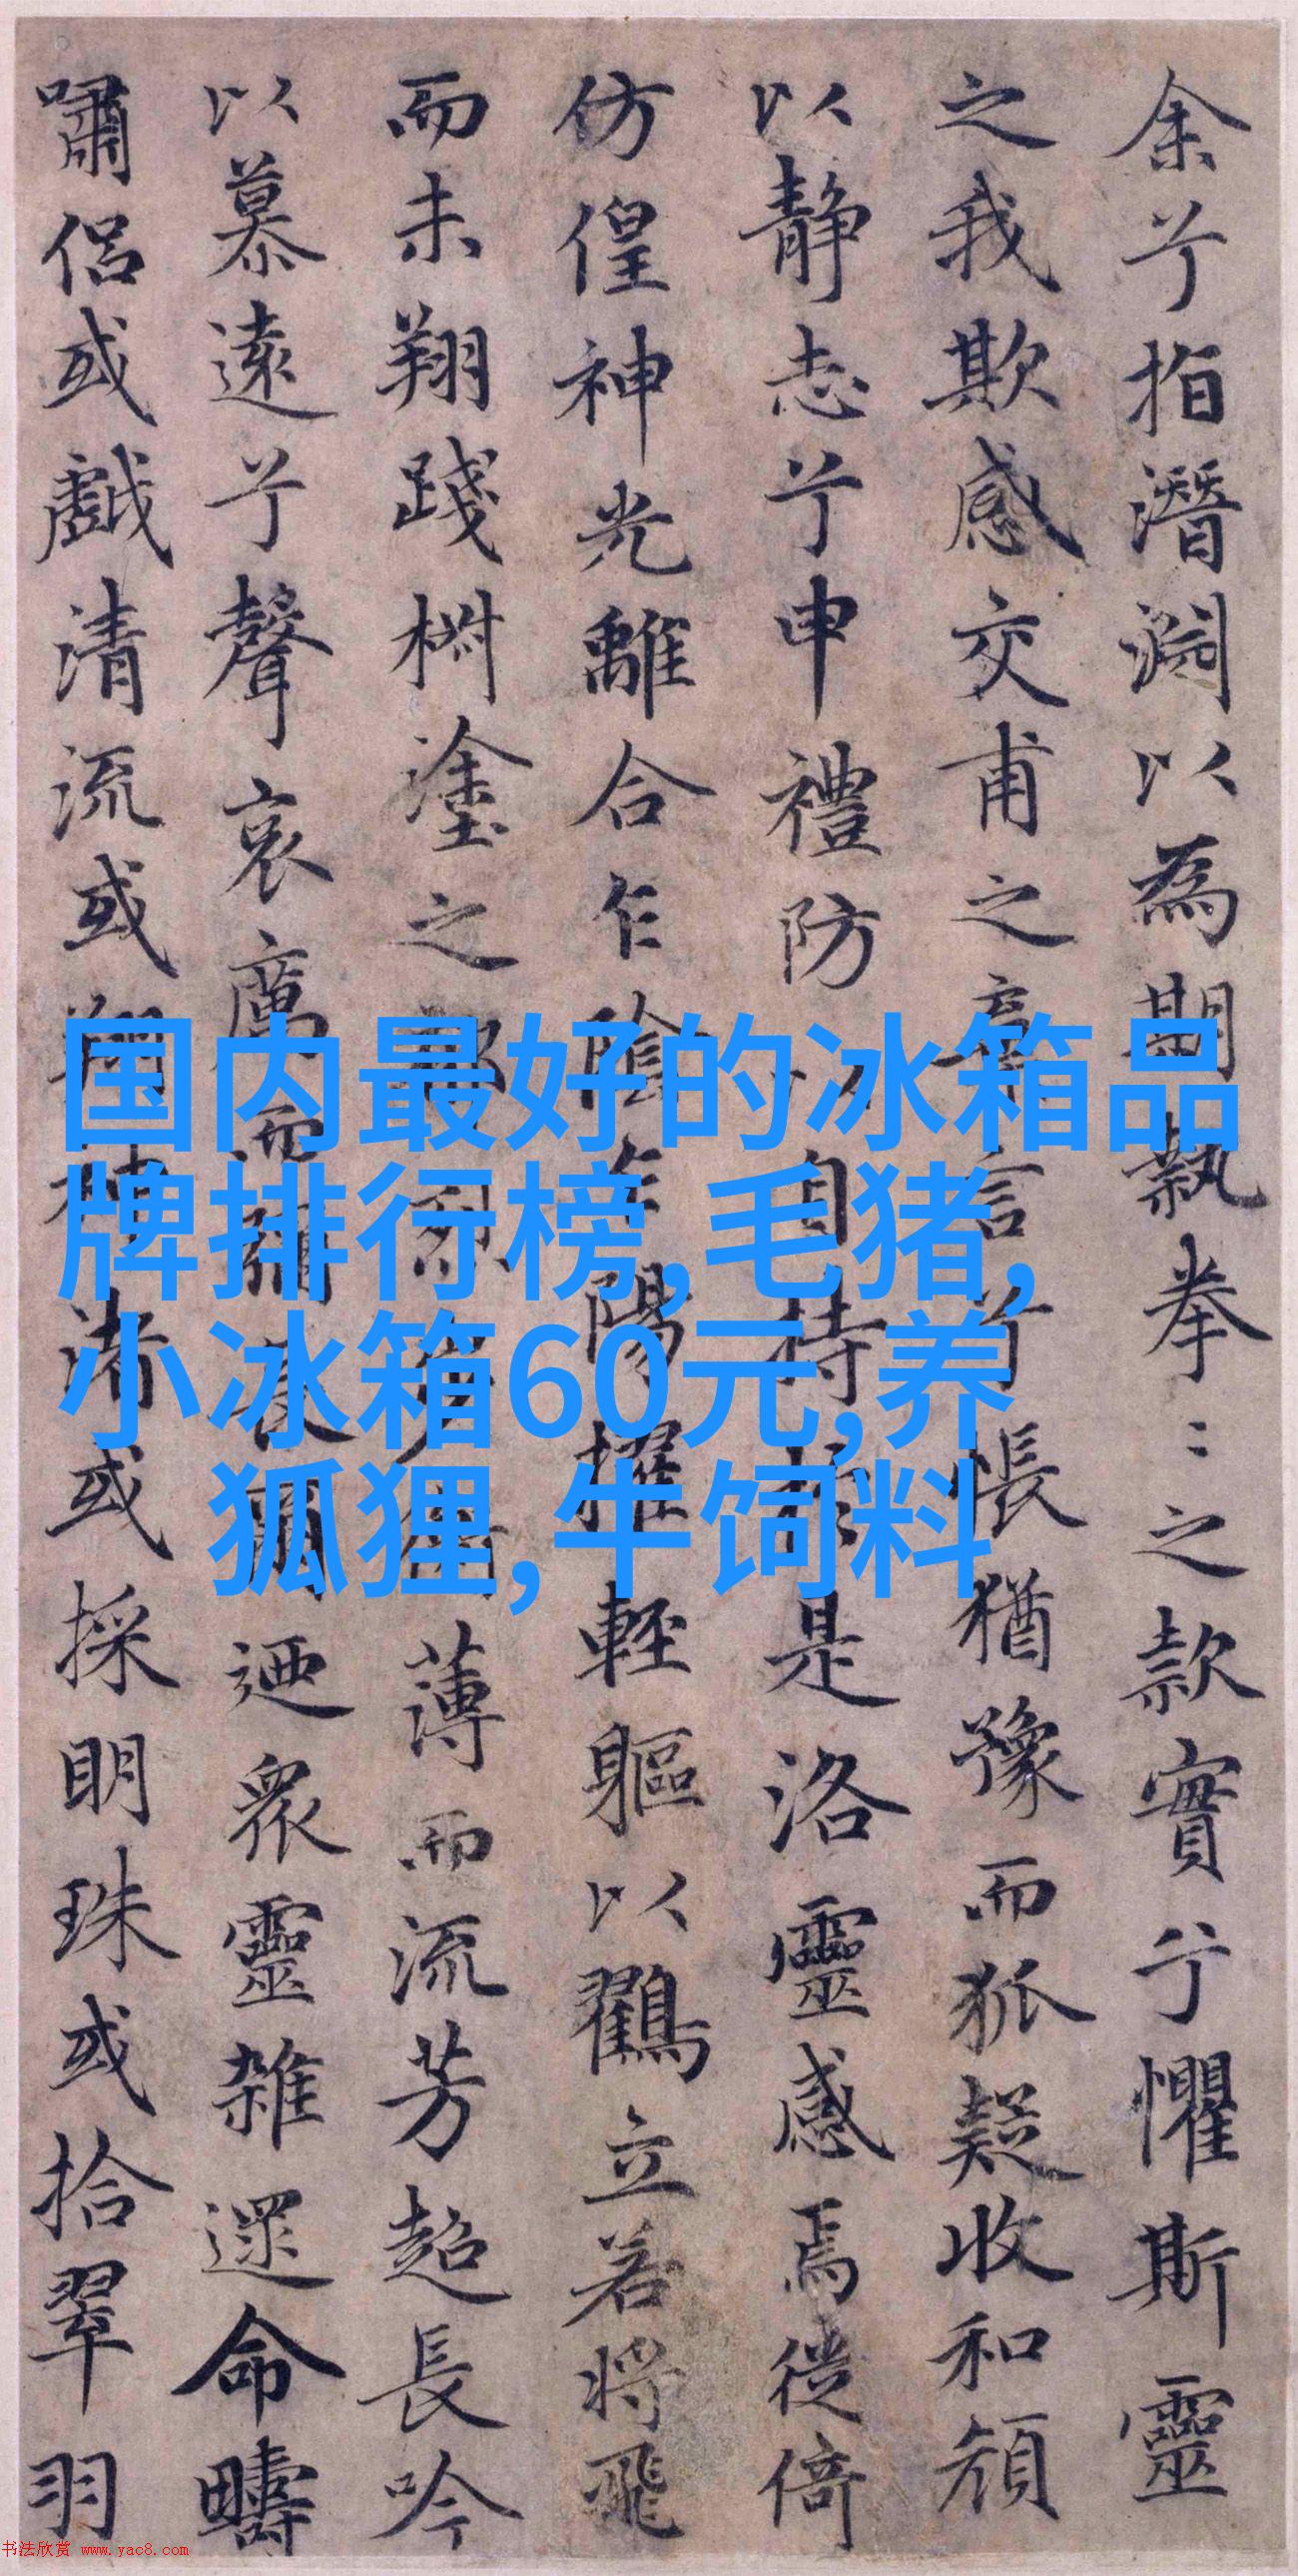 余兮指潛淵以為期執拳〻之款實兮懼斯靈
之我欺感交甫之棄言兮悵猶豫而狐疑收和顏
以静志兮申禮防以自持於是洛靈感焉徙倚
仿偟神光離合乍陰乍陽擢輕軀以鶴立若將飛
而未翔踐椒塗之郁烈步蘅薄而流芳超長吟
以慕遠兮聲哀厲而彌長爾迺衆靈雜遝命疇
嘯侶或戲清流或翔神渚或採明珠或拾翠羽
国内最好的冰箱品
牌排行榜,毛猪,
小冰箱60元,养
狐狸,牛饲料
书法欣赏 www.yac8.com